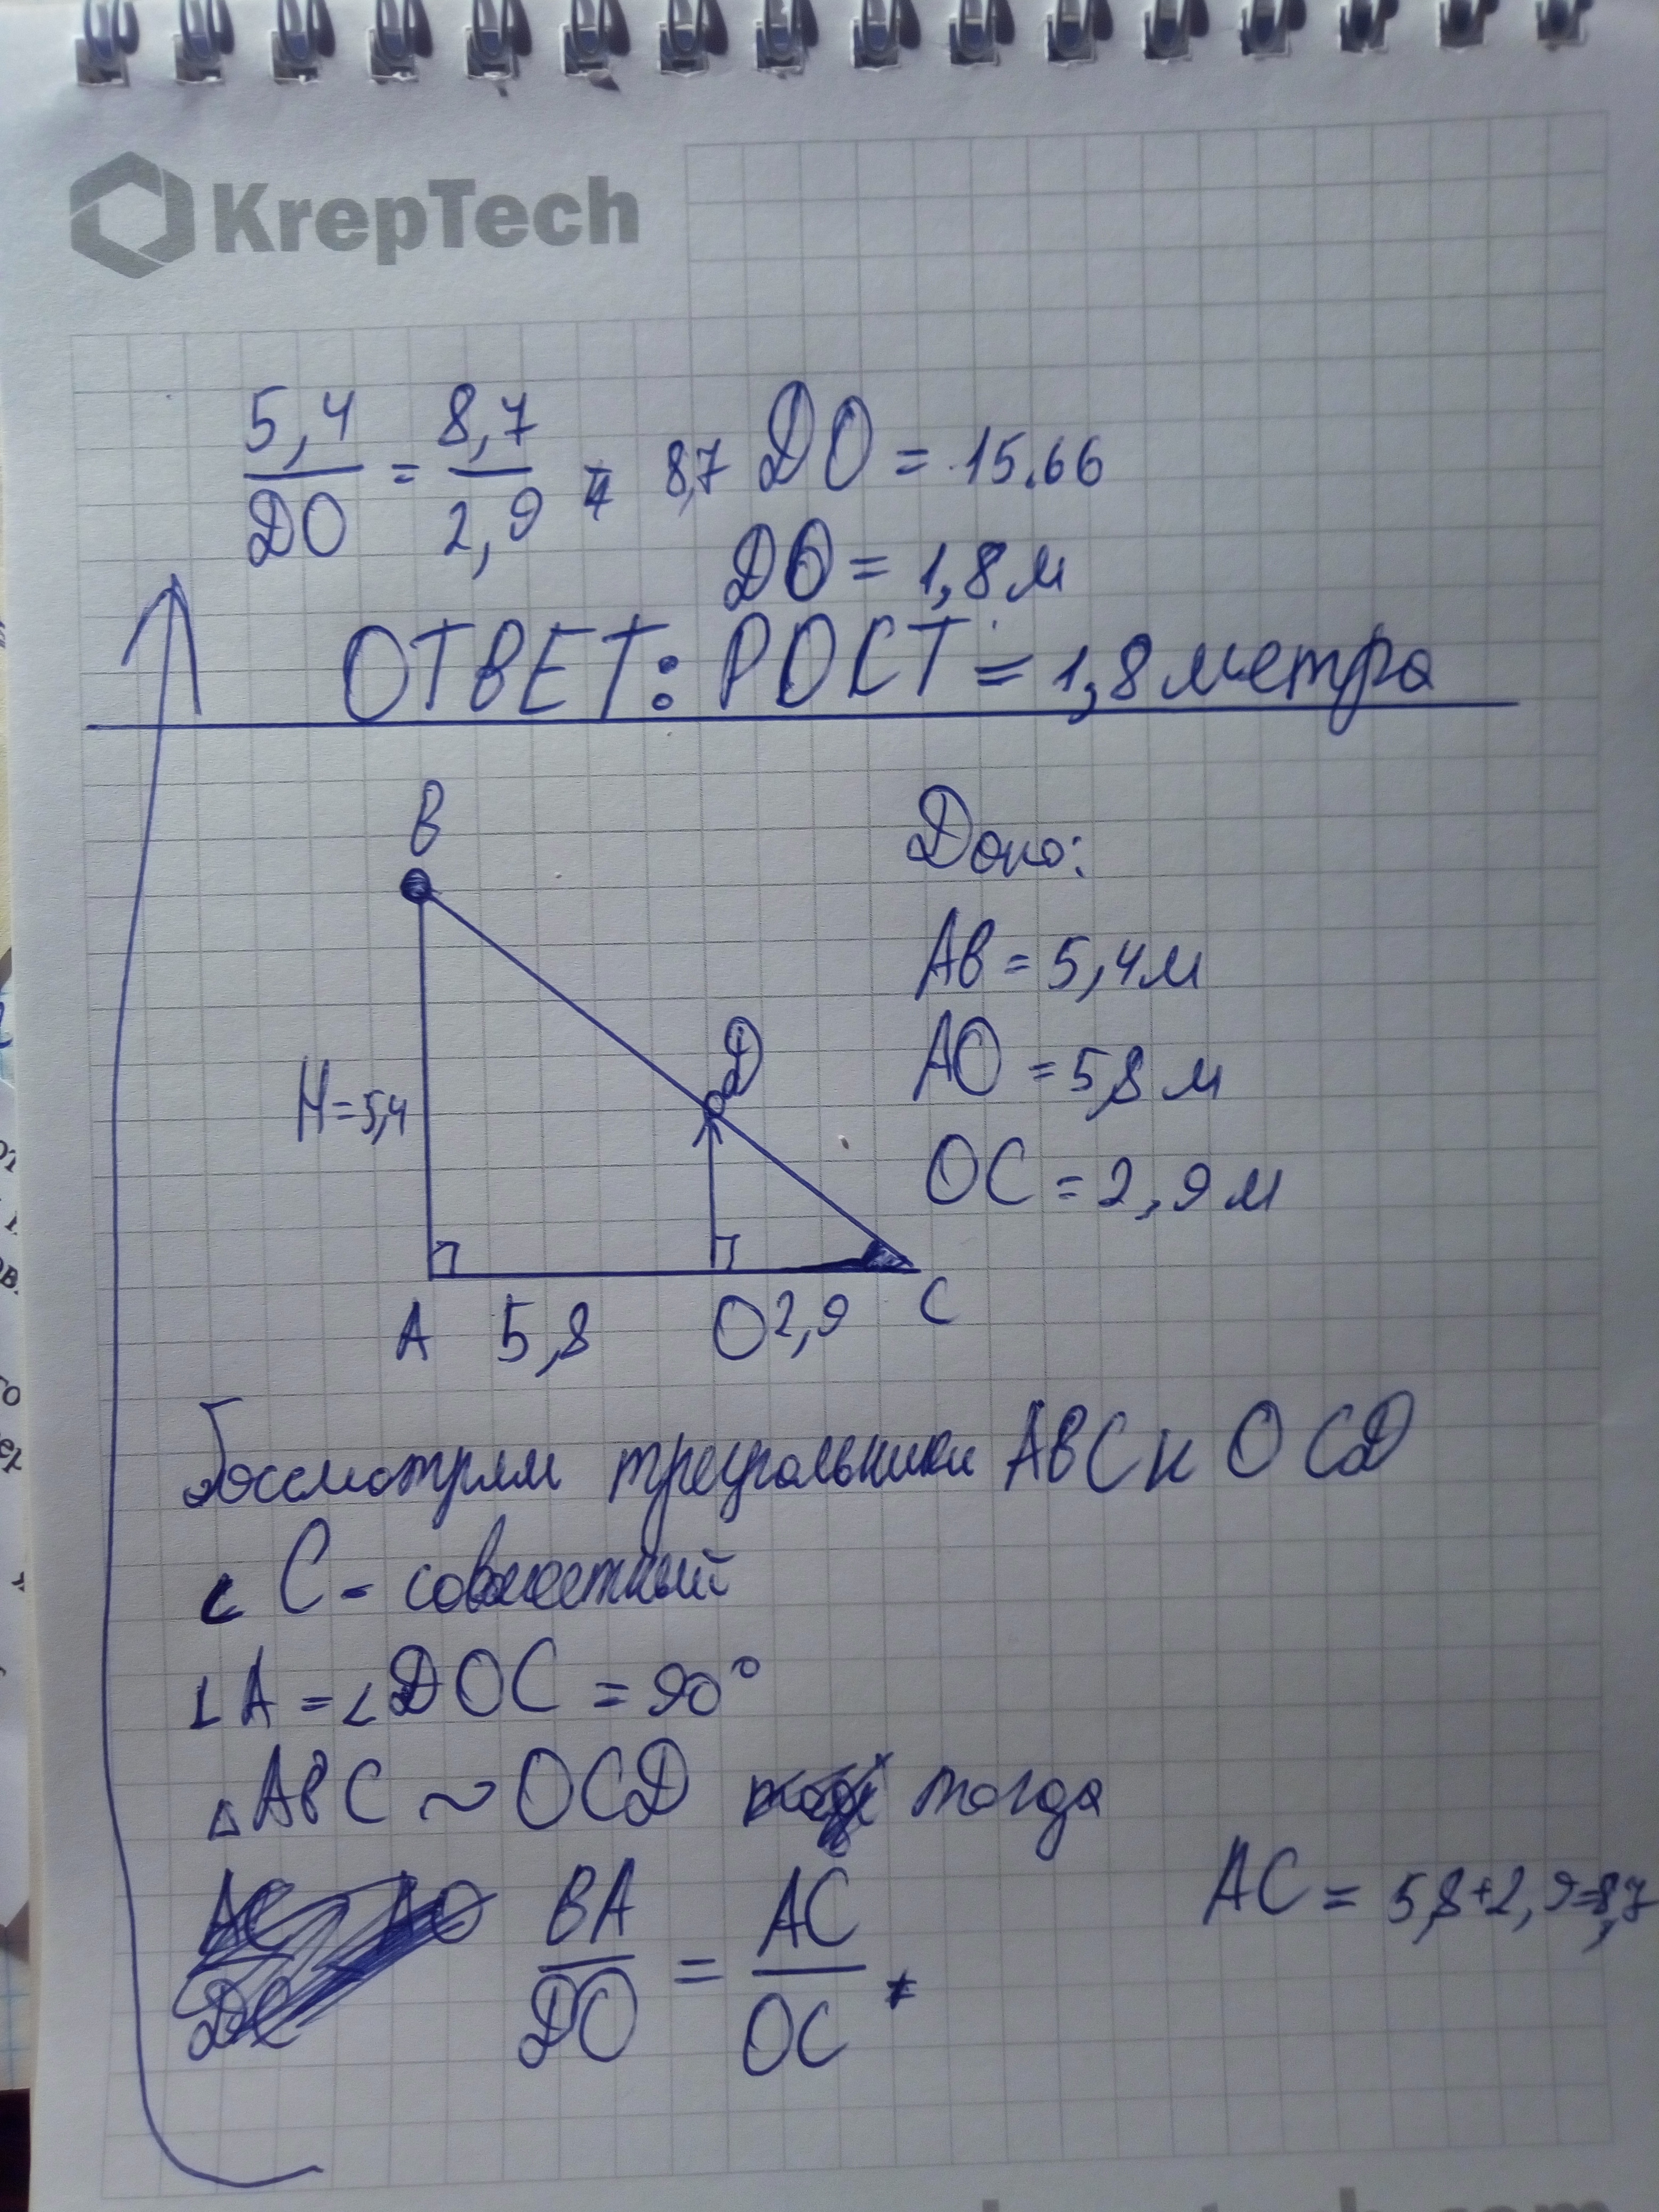 KrepTech
5,4/DO = 8,7/2,9 = 8,7 DO = 15.66
DO = 1,8 м
ОТВЕТ: РОСТ = 1,8 метра
B
Дано:
AB = 5,4 м
D
AO = 5,8 м
H = 5,4
OC = 2,9 м
A 5,8 O 2,9 C
Рассмотрим треугольники ABC и OCD
∠ C - совместный
∠ A = ∠ DOC = 90°
△ ABC ~ OCD тогда
BA/DO = AC/OC
AC = 5,8 + 2,9 = 8,7